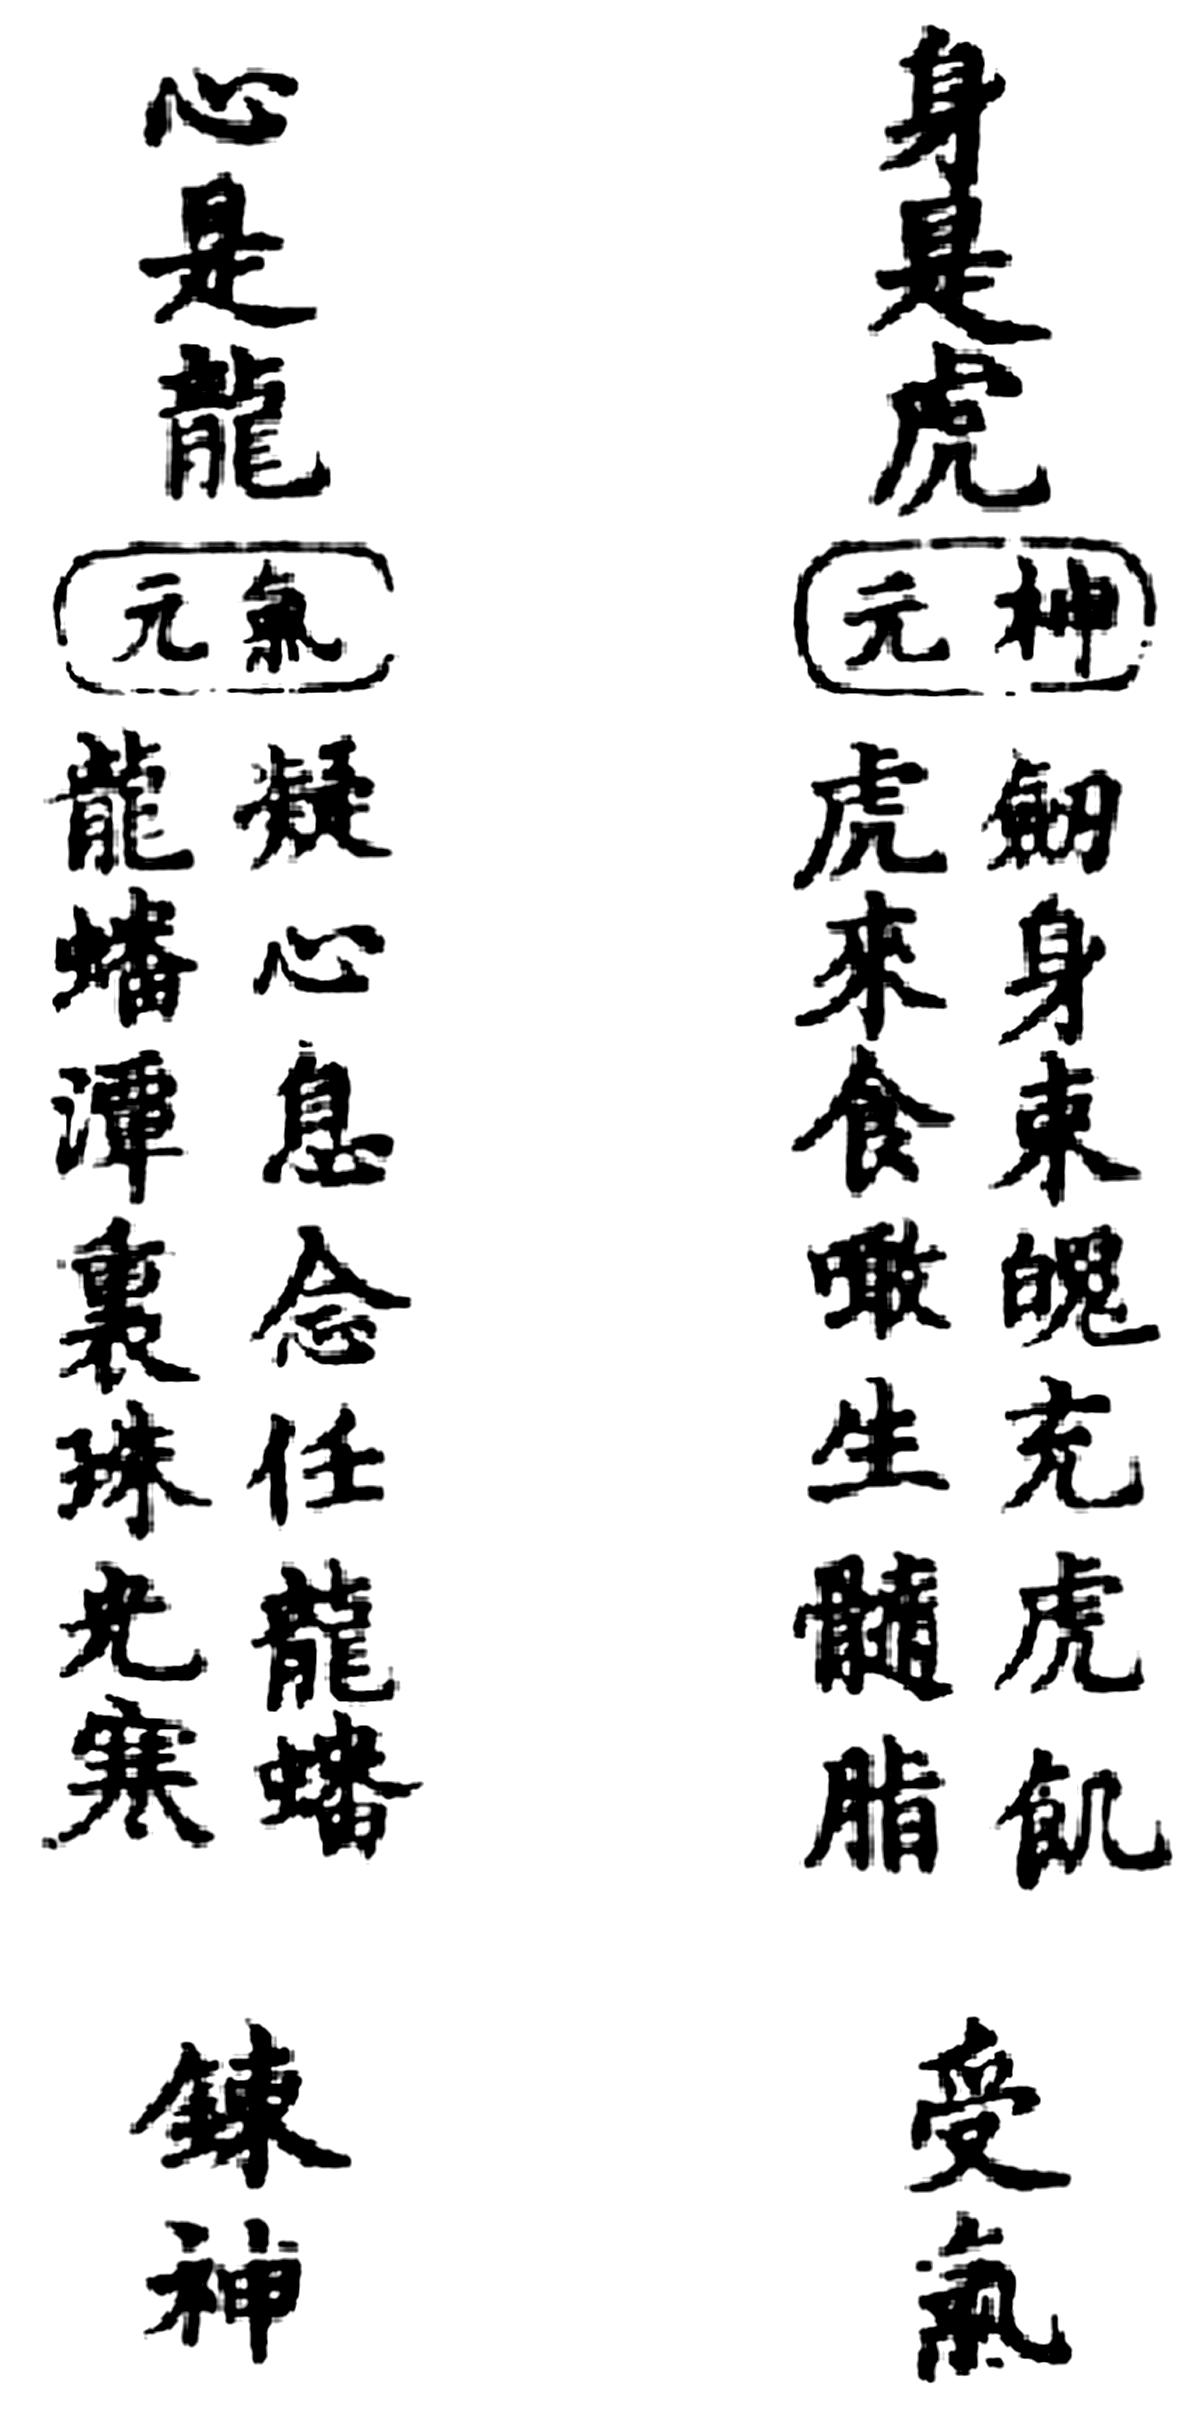 身是虎
元神
劒身束魄充虎飢
虎來食噉生髓脂
受氣
心是龍
元氣
凝心息念任龍蟠
龍蟠潭裏珠光寒
鍊神